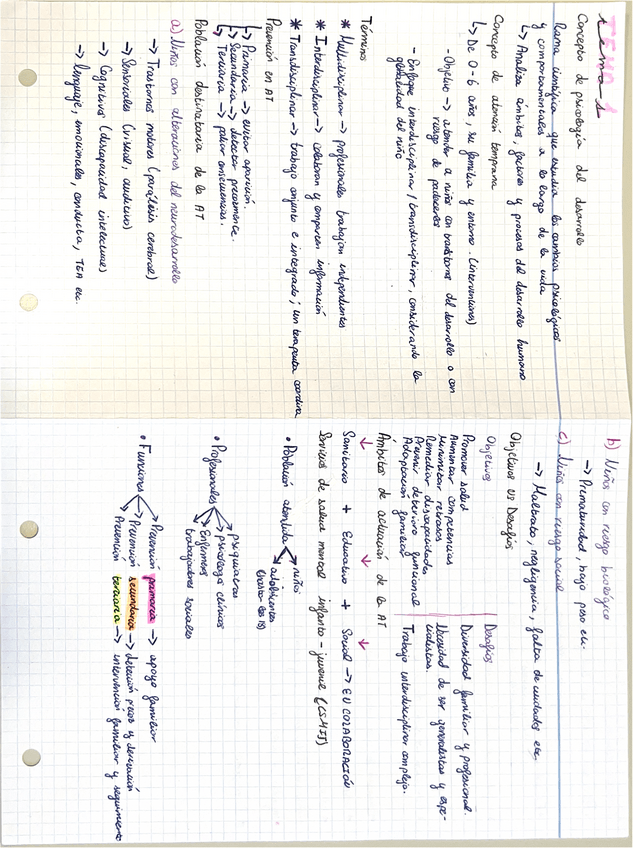 TEMA 1
Concepto de psicología del desarrollo
Rama científica que estudia los cambios psicológicos
y comportamentales a lo largo de la vida
↳ Analiza ámbitos, factores y procesos del desarrollo humano
Concepto de atención temprana
↳ De 0-6 años, su familia y entorno. (intervenciones)
- Objetivo → atender a niños con trastornos del desarrollo o con
riesgo de padecerlos
- Enfoque interdisciplinar / transdisciplinar, considerando la
globalidad del niño
Términos
* Multidisciplinar → profesionales trabajan independientes
* Interdisciplinar → colaboran y comparten información
* Transdisciplinar → trabajo conjunto e integrado, un terapeuta coordina
Prevención en AT
↳ Primaria → evitar aparición.
↳ Secundaria → detectar precozmente.
↳ Terciaria → paliar consecuencias.
Población destinataria de la AT
a) Niños con alteraciones del neurodesarrollo
→ Trastornos motores (parálisis cerebral)
→ Sensoriales (visual, auditivo)
→ Cognitivos (discapacidad intelectual)
→ Lenguaje, emocionales, conducta, TEA etc.
b) Niños con riesgo biológico
→ Prematuridad, bajo peso etc.
c) Niños con riesgo social
→ Maltrato, negligencia, falta de cuidados etc.
Objetivos vs Desafíos
Objetivos
Promover salud
Aumentar competencias
Minimizar retrasos
Remediar discapacidades
Prevenir deterioro funcional
Adaptación familiar
Desafíos
Diversidad familiar y profesional.
Necesidad de ser generalistas y espe-
cialistas.
Trabajo interdisciplinar complejo.
Ámbitos de actuación de la AT
↓ ↓ ↓
Sanitario + Educativo + Social → EN COLABORACIÓN
Servicios de salud mental infanto-juvenil (CSMIJ)
• Población atendida
niños
adolescentes
(hasta los 18)
• Profesionales
psiquiatras
psicólogos clínicos
Enfermeros
trabajadores sociales
• Funciones
Prevención primaria → apoyo familiar
Prevención secundaria → detección precoz y derivación
Prevención terciaria → intervención familiar y seguimiento